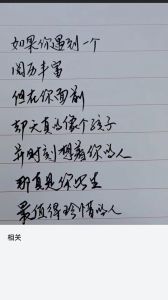 如果你遇到一个
阅历丰富
但在你面前
却天真的像个孩子
并时刻想着你的人
那真是你此生
最值得珍惜的人
相关